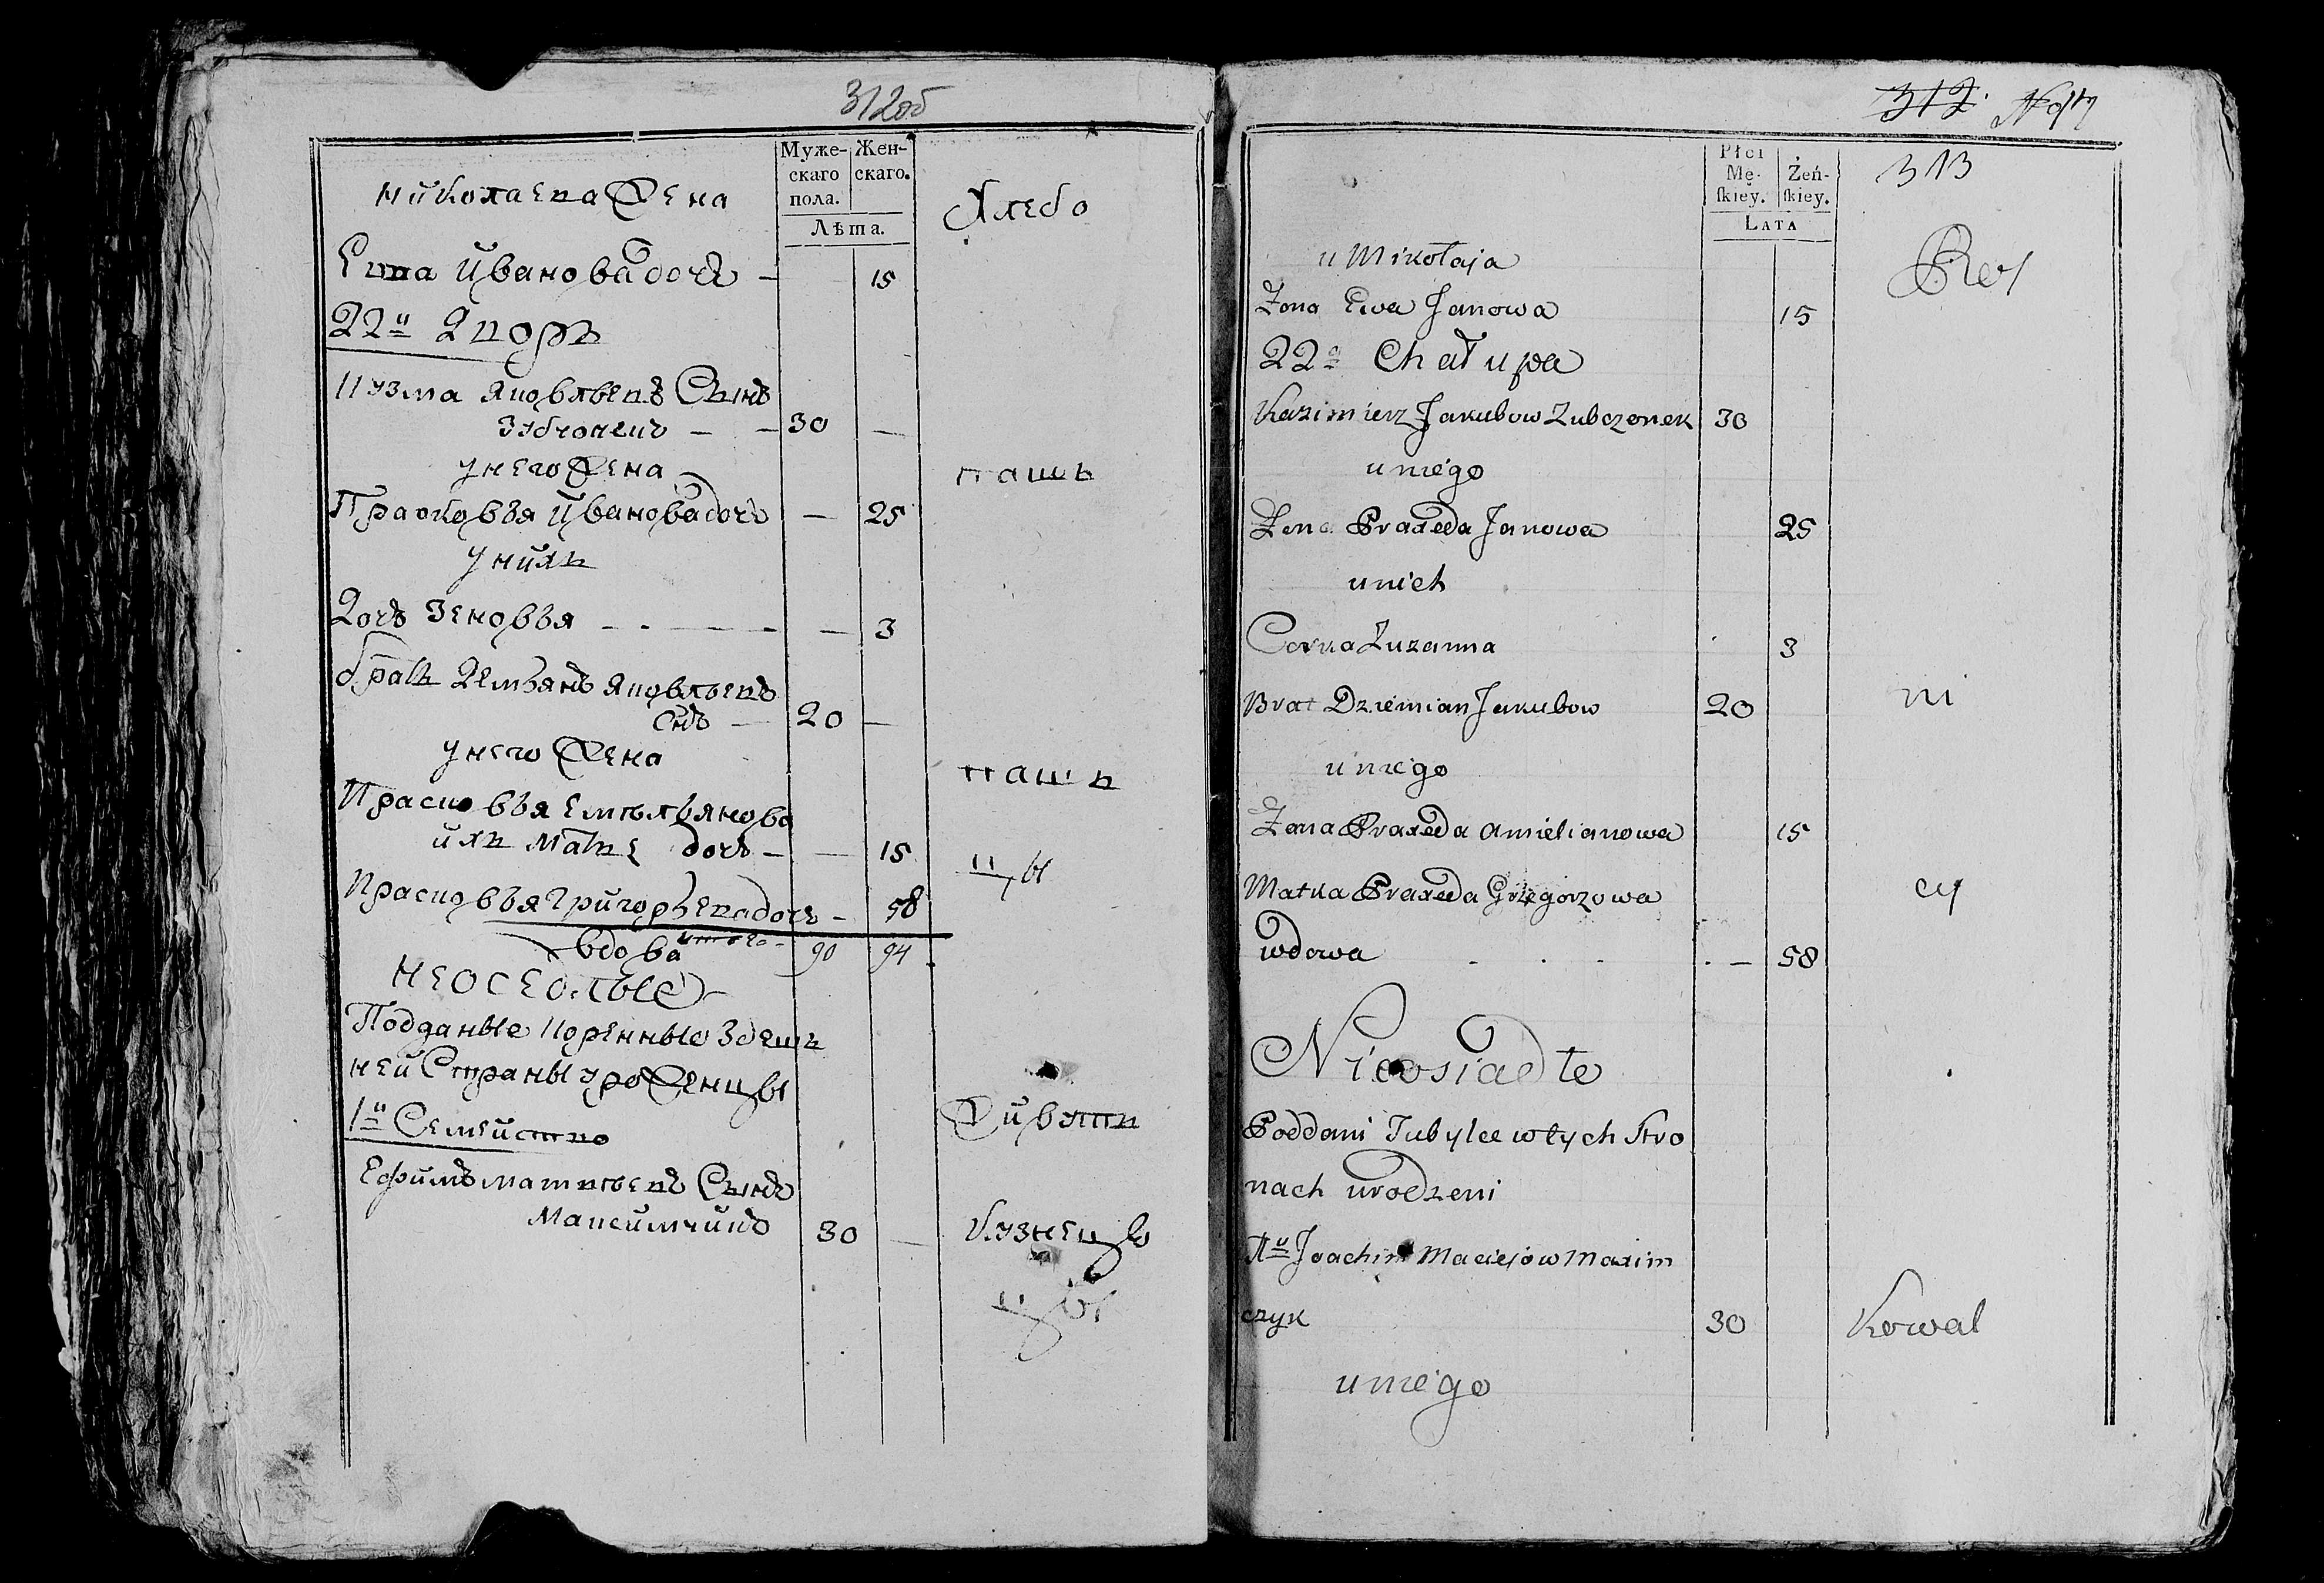 312об
Муже-
скаго
пола.
Жен-
скаго.
Лѣта.
Николаева Жена
Хлебо
Ева Ивановa дочь — 15
22й Дворъ
Кузма Яковлевъ Сынъ
Зубчонекъ — — 30 —
у него Жена
пашъ
Прасковья Иванова дочь — 25
у нихъ
Дочь Зеновья — — — — — 3
братъ Демьянъ Яковлевъ
снъ — 20 —
у него Жена
пашъ
Прасковья Емельянова
ихъ мать дочь — — 15
цы
Прасковья Григорьева дочь — 58
вдова итого — 90 94
неоседлые
Подданые Коренные Здешъ
ней Страны уроженцы
1й Семейство
Живутъ
Ефимъ матвѣевъ Сынъ
Максимчикъ 30 — Кузнецъ
цы
312.
313
Płci
Mę-
ſkiey.
Żeń-
ſkiey.
LATA
u Mikołaja
Rol
Zona Ewa Janowa 15
22a Chałupa
Kazimierz Jakubow Zubczonek 30
u niego
Zona Praxeda Janowa 25
u nich
Corka Zuzanna 3
ni
Brat Dziemian Jakubow 20
u niego
Zona Praxeda Amielianowa 15
Matka Praxeda Grzegorzowa
cy
wdowa . . . . — 58
Nieosiadłe
Poddani Tubylce w tych Stro
nach urodzeni
Joachim Maciejow Maxim
czyk 30 Kowal
u niego